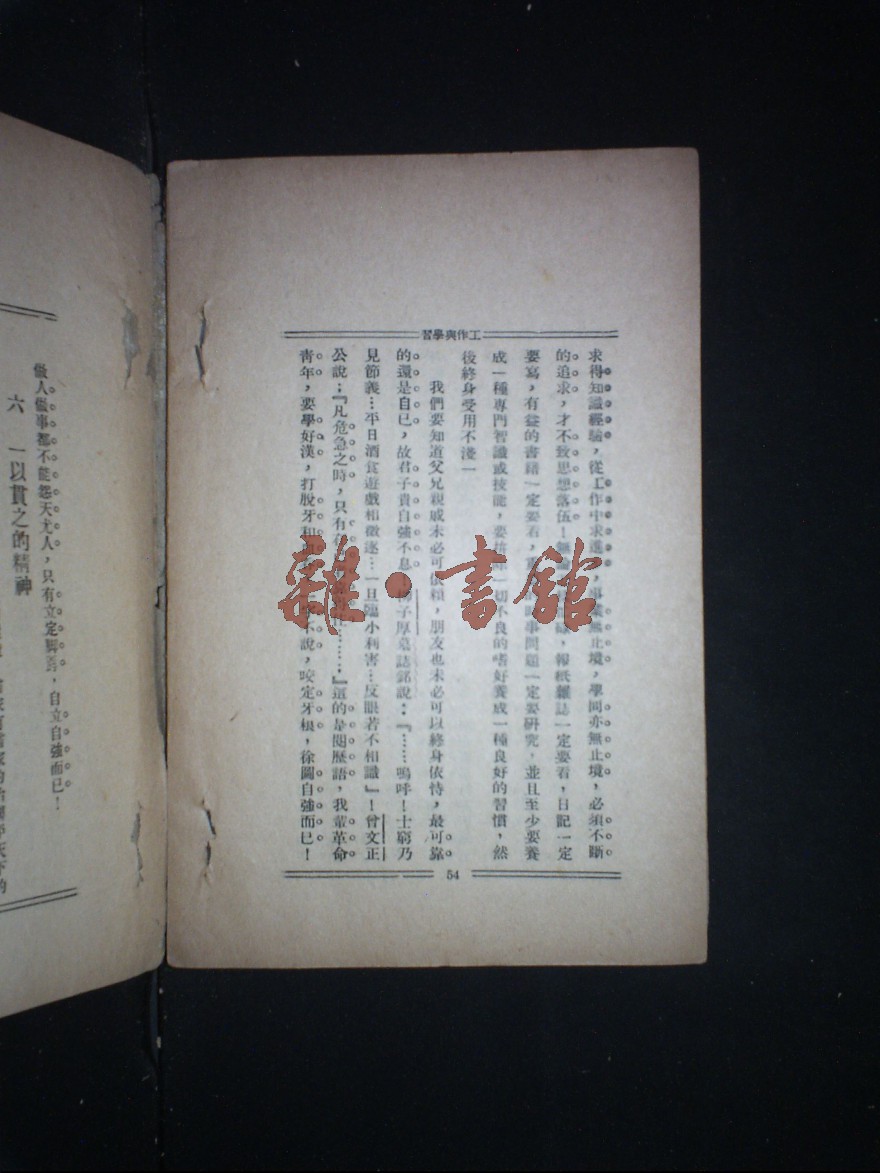 習學與作工
求得知識經驗，從工作中求進
無止境，學問亦無止境，必須不斷
的追求，才不致思想落伍！無論
報紙雜誌一定要看，日記一定
要寫，有益的書籍一定要看，
時事問題一定要研究，並且至少要養
成一種專門智識或技能，要
一切不良的嗜好養成一種良好的習慣，然
後終身受用不淺！
我們要知道父兄親戚未必可依賴，朋友也未必可以終身依恃，最可靠
的還是自己，故君子貴自強不息，
子厚墓誌銘說：『……嗚呼！士窮乃
見節義…平日酒食遊戲相徵逐…一旦臨小利害…反眼若不相識』！曾文正
公說：『凡危急之時，只有
………』這的是閱歷語，我輩革命
青年，要學好漢，打脫牙和
不說，咬定牙根，徐圖自強而已！
54
做人做事都不能怨天尤人，只有立定腳跟，自立自強而已！
六　一以貫之的精神
雜·書館